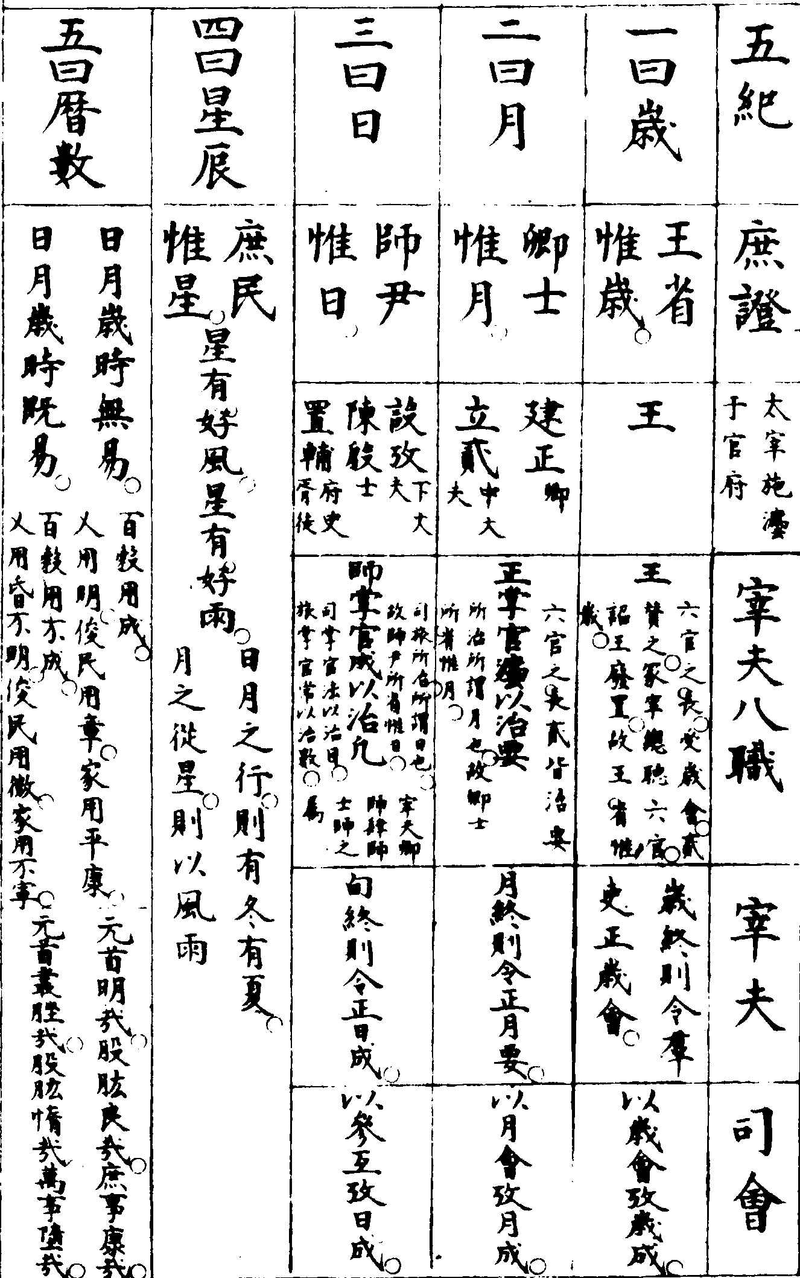 五紀
庶證
太宰施灋
于官府
宰夫八職
宰夫
司會
一曰歲
王省
惟歲
王
王
六官之長受歲會貳
贊之冢宰總聽六官
詔王廢置故王省惟
歲
歲終則令羣
吏正歲會
以歲會攷歲成
二曰月
卿士
惟月
建正卿
立貳中大
夫
正掌官灋以治要
六官之長貳皆治要
所治所謂月也故卿士
所省惟月
月終則令正月要
以月會攷月成
三曰日
師尹
惟日
設攷下大
夫
陳殷士
置輔府史
胥徒
師掌官成以治凡
宰夫鄉
師肆師
士師之
屬
司旅所治所謂日也
故師尹所省惟日
司掌官法以治目
旅掌官常以治數
旬終則令正日成
以參互攷日成
四曰星辰
庶民
惟星
星有好風星有好雨
日月之行則有冬有夏
月之從星則以風雨
五曰曆數
日月歲時無易
百穀用成
乂用明俊民用章家用平康
元首明哉股肱良哉庶事康哉
日月歲時旣易
百穀用不成
乂用昏不明俊民用微家用不寧
元首叢脞哉股肱惰哉萬事墮哉